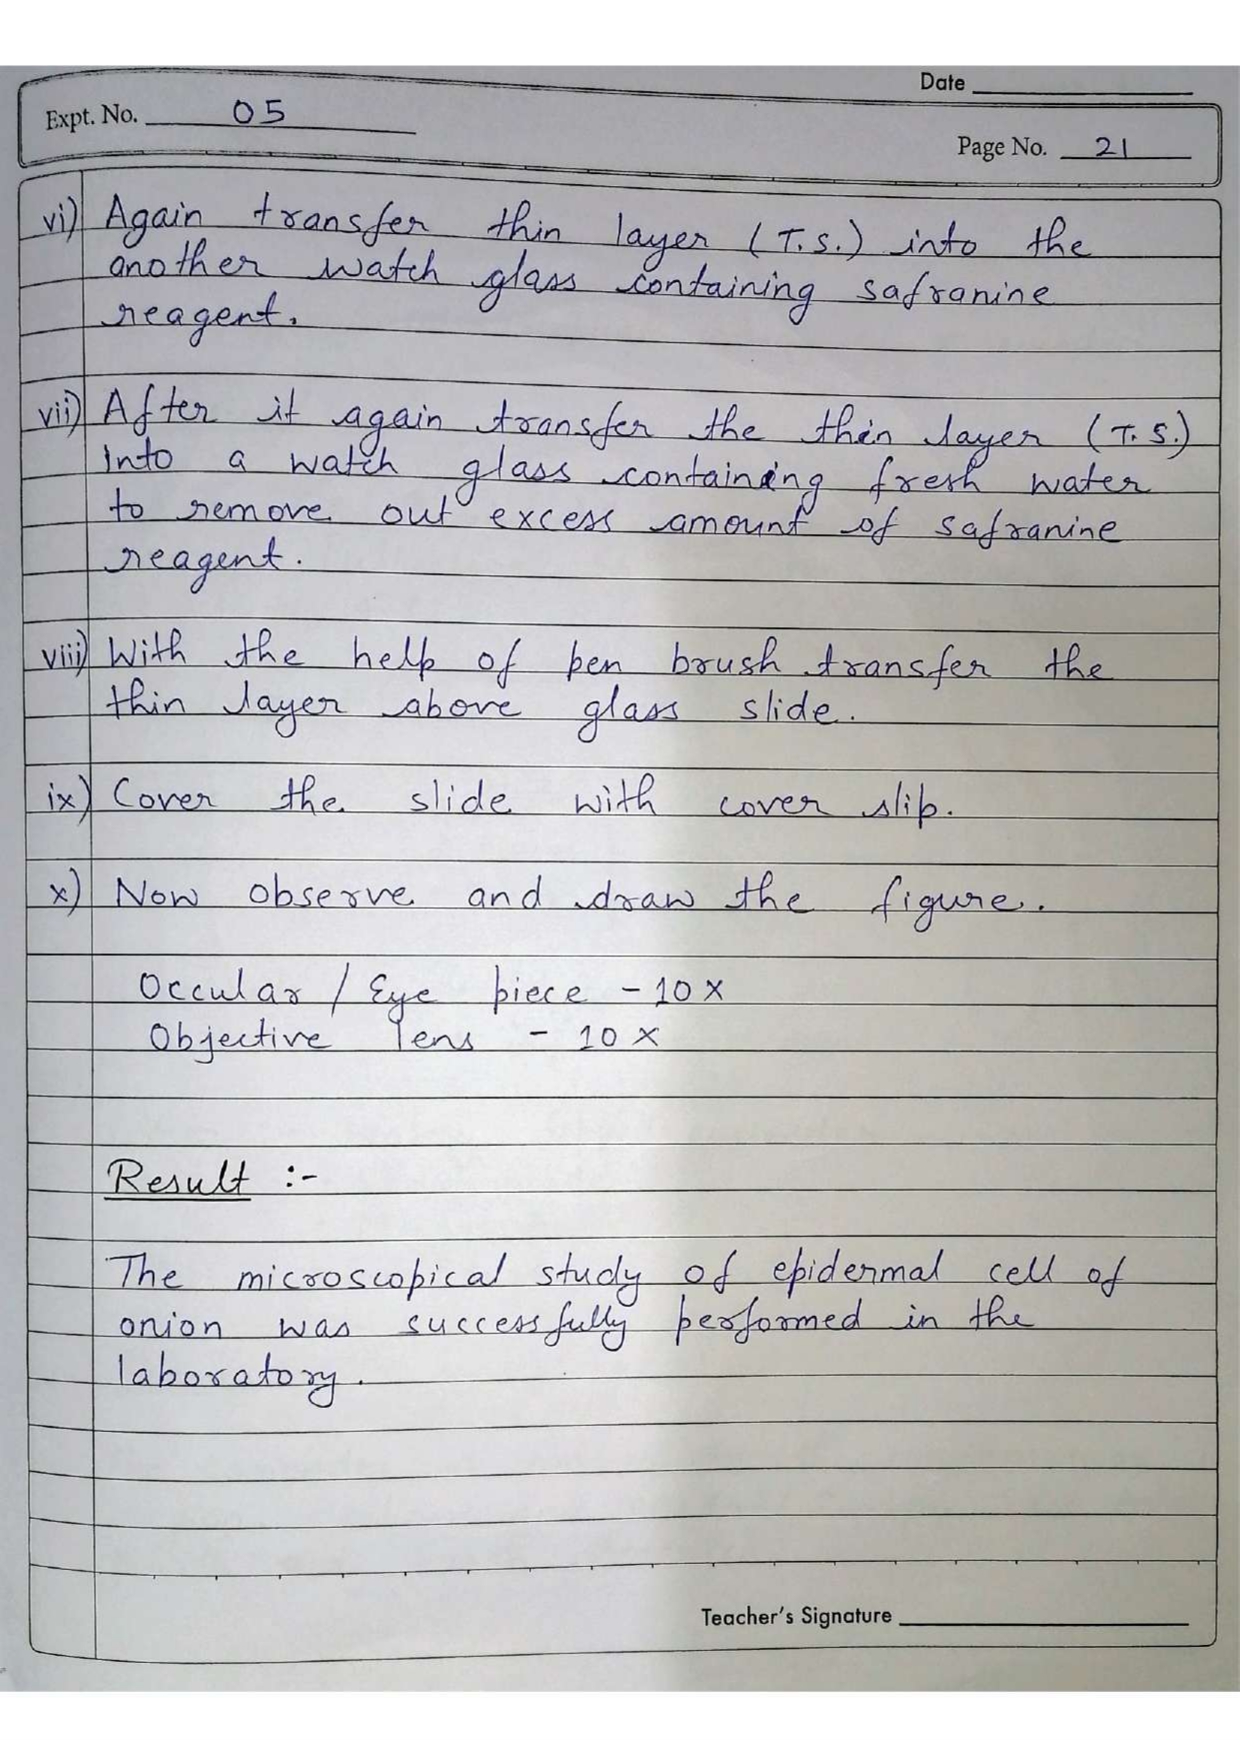 Date
Expt. No. 05
Page No. 21
vi) Again transfer thin layer (T.S.) into the
another watch glass containing safranine
reagent.
vii) After it again transfer the thin layer (T.S.)
into a watch glass containing fresh water
to remove out excess amount of safranine
reagent.
viii) With the help of pen brush transfer the
thin layer above glass slide.
ix) Cover the slide with cover slip.
x) Now observe and draw the figure.
Occular / Eye piece - 10 x
Objective lens - 10 x
Result :-
The microscopical study of epidermal cell of
onion was successfully performed in the
laboratory.
Teacher's Signature